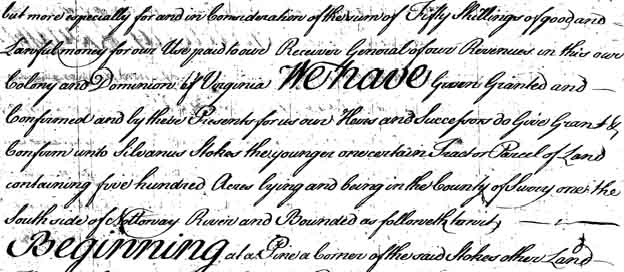 but more especially for and in Consideration of the sum of Fifty Shillings of good and
Lawful money for our Use paid to our Receiver General of our Revenues in this our
Colony and Dominion of Virginia We have Given Granted and
Confirmed and by these Presents for us our Heirs and Successors do Give Grant &
Confirm unto Silvanus Stokes the younger one certain Tract or Parcel of Land
containing five hundred Acres lying and being in the County of Surry one the
South side of Nottoway River and Bounded as followeth towit,
Beginning at a Pine a Corner of the said Stokes other Land